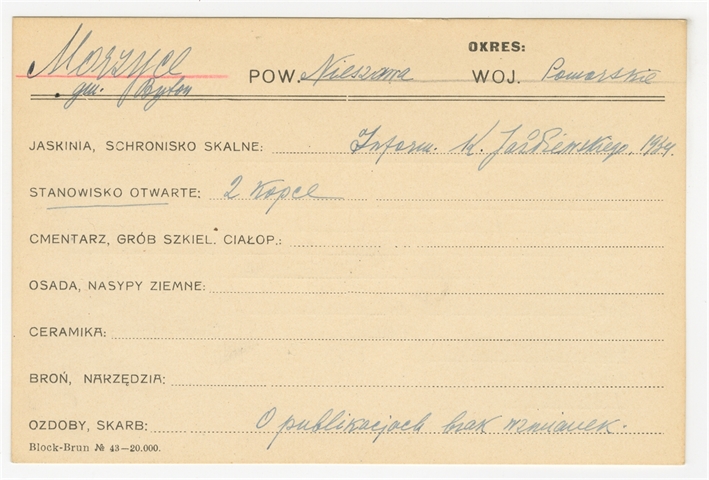 OKRES:
Morzyce POW. Nieszawa WOJ. Pomorskie
gm. Bytoń
JASKINIA, SCHRONISKO SKALNE: Inform. K. Jażdżewskiego, 1934.
STANOWISKO OTWARTE: 2 Kopce
CMENTARZ, GRÓB SZKIEL. CIAŁOP.:
OSADA, NASYPY ZIEMNE:
CERAMIKA:
BROŃ, NARZĘDZIA:
OZDOBY, SKARB: O publikacjach brak wzmianek.
Block-Brun № 43—20.000.